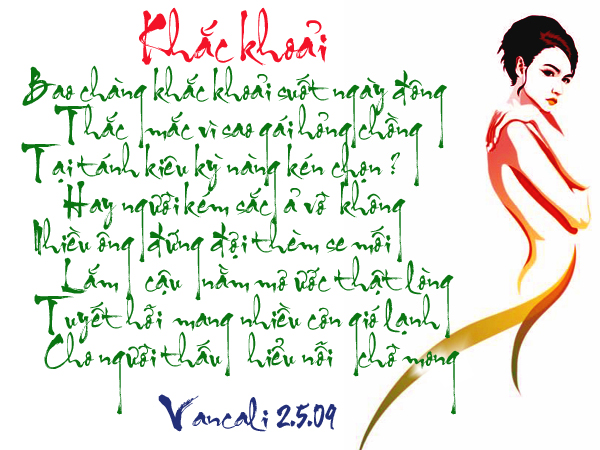 Khắc khoải
Bao chàng khắc khoải suốt ngày đông
Thắc mắc vì sao gái hỏng chồng
Tại tánh kiêu kỳ nàng kén chọn ?
Hay người kém sắc ả vô không
Nhiều ông đứng đợi thèm se mối
Lắm cậu nằm mơ ước thật lòng
Tuyết hỡi mang nhiều cơn gió lạnh
Cho người thấu hiểu nỗi chờ mong
Vancali 2.5.09